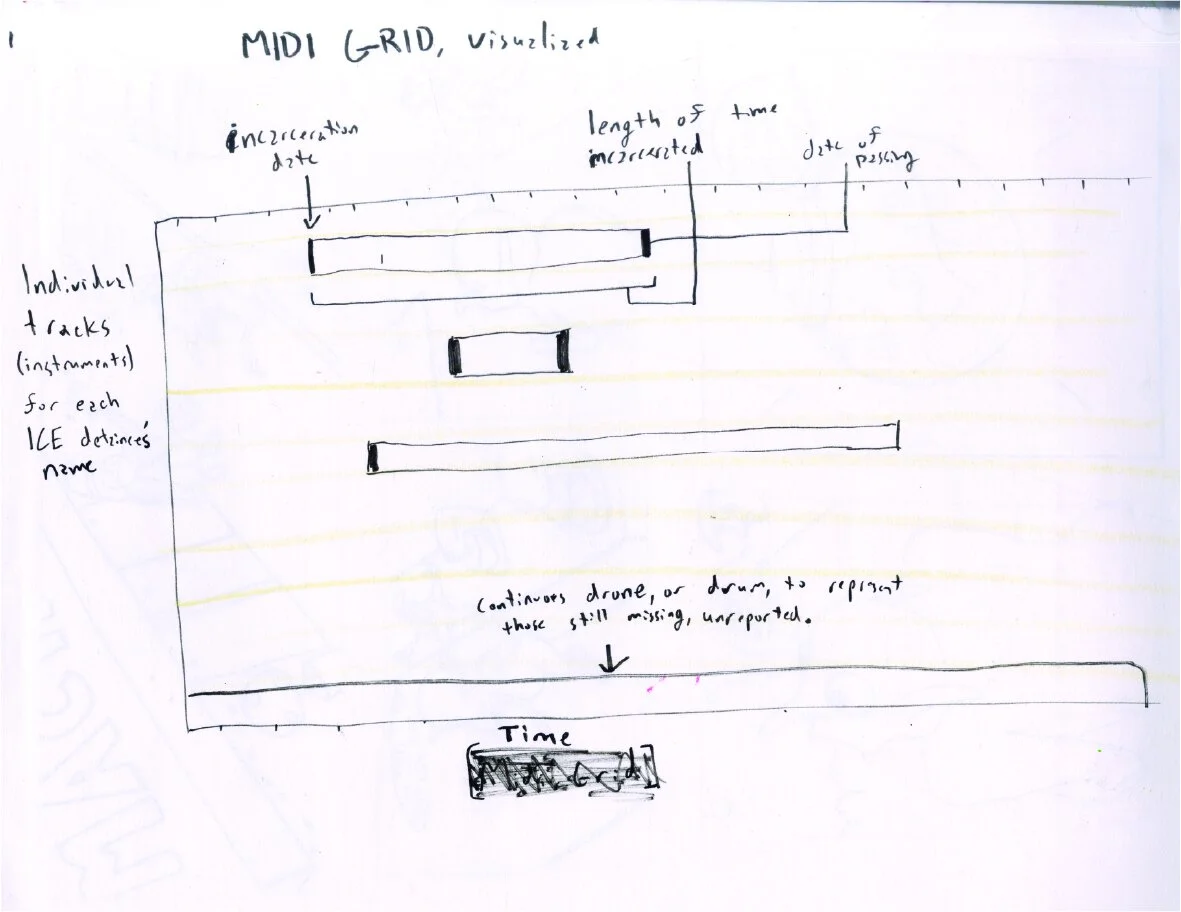 1
MIDI GRID, visualized
incarceration
date
length of time
incarcerated
date of
passing
Individual
tracks
(instruments)
for each
ICE detainees'
name
continuos drone, or drum, to represent
those still missing, unreported.
Time
[Midi Grid]